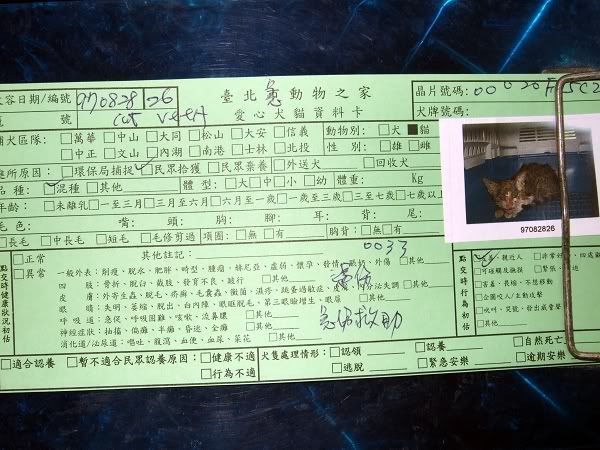 收容日期/編號 970828 26 臺北 動物之家 晶片號碼:
號 愛心犬貓資料卡 犬牌號碼:
捕犬區隊: □萬華 □中山 □大同 □松山 □大安 □信義 動物別: □犬 ■貓
□中正 □文山 □內湖 □南港 □士林 □北投 性 別: □雄 □雌
處所原因: □環保局捕捉 □民眾拾獲 □民眾棄養 □外送犬 □回收犬
品種: □混種 □其他 體 型: □大 □中 □小 □幼 體重: Kg
年齡: □未離乳 □一至三月 □三至六月 □六月至一歲 □一歲至三歲 □三至七歲 □七歲以上
毛色: 嘴: 頭: 胸: 腳: 耳: 背: 尾:
□長毛 □中長毛 □短毛 □毛修剪過 項圈: □無 □有 胸背: □無 □有
97082826
點交時健康狀況初估 □正常 其他註記: 0033
□異常 一般外表: 削瘦、脫水、肥胖、畸型、腫瘤、赫尼亞、虛弱、懷孕、發情、外傷 □其他
四 肢: 骨折、脫臼、截肢、發育不良、跛行 □其他
皮 膚: 外寄生蟲、脫毛、疥癬、毛囊蟲、黴菌、濕疹、跳蚤過敏症
眼 睛: 失明、萎縮、脫出、白內障、眼睚脫毛、第三眼瞼增生、眼屎 □其他
呼吸道: 急促、呼吸困難、咳嗽、流鼻膿 □其他
神經症狀: 抽搐、偏癱、半癱、昏迷、全癱 □其他
消化道/泌尿道: 嘔吐、腹瀉、血便、血尿、菜花 □其他
急傷救助
點交時行為初估 親近人
□可碰觸及撫摸 □緊張
□害羞、長縮、不想移動
□企圖咬人/主動攻擊
□吠叫、哭號、發出威脅聲
□其他
□適合認養 □暫不適合民眾認養原因: □健康不適 犬隻處理情形: □認領 □認養 □自然死亡
□行為不適 □逃脫 □緊急安樂 □逾期安樂